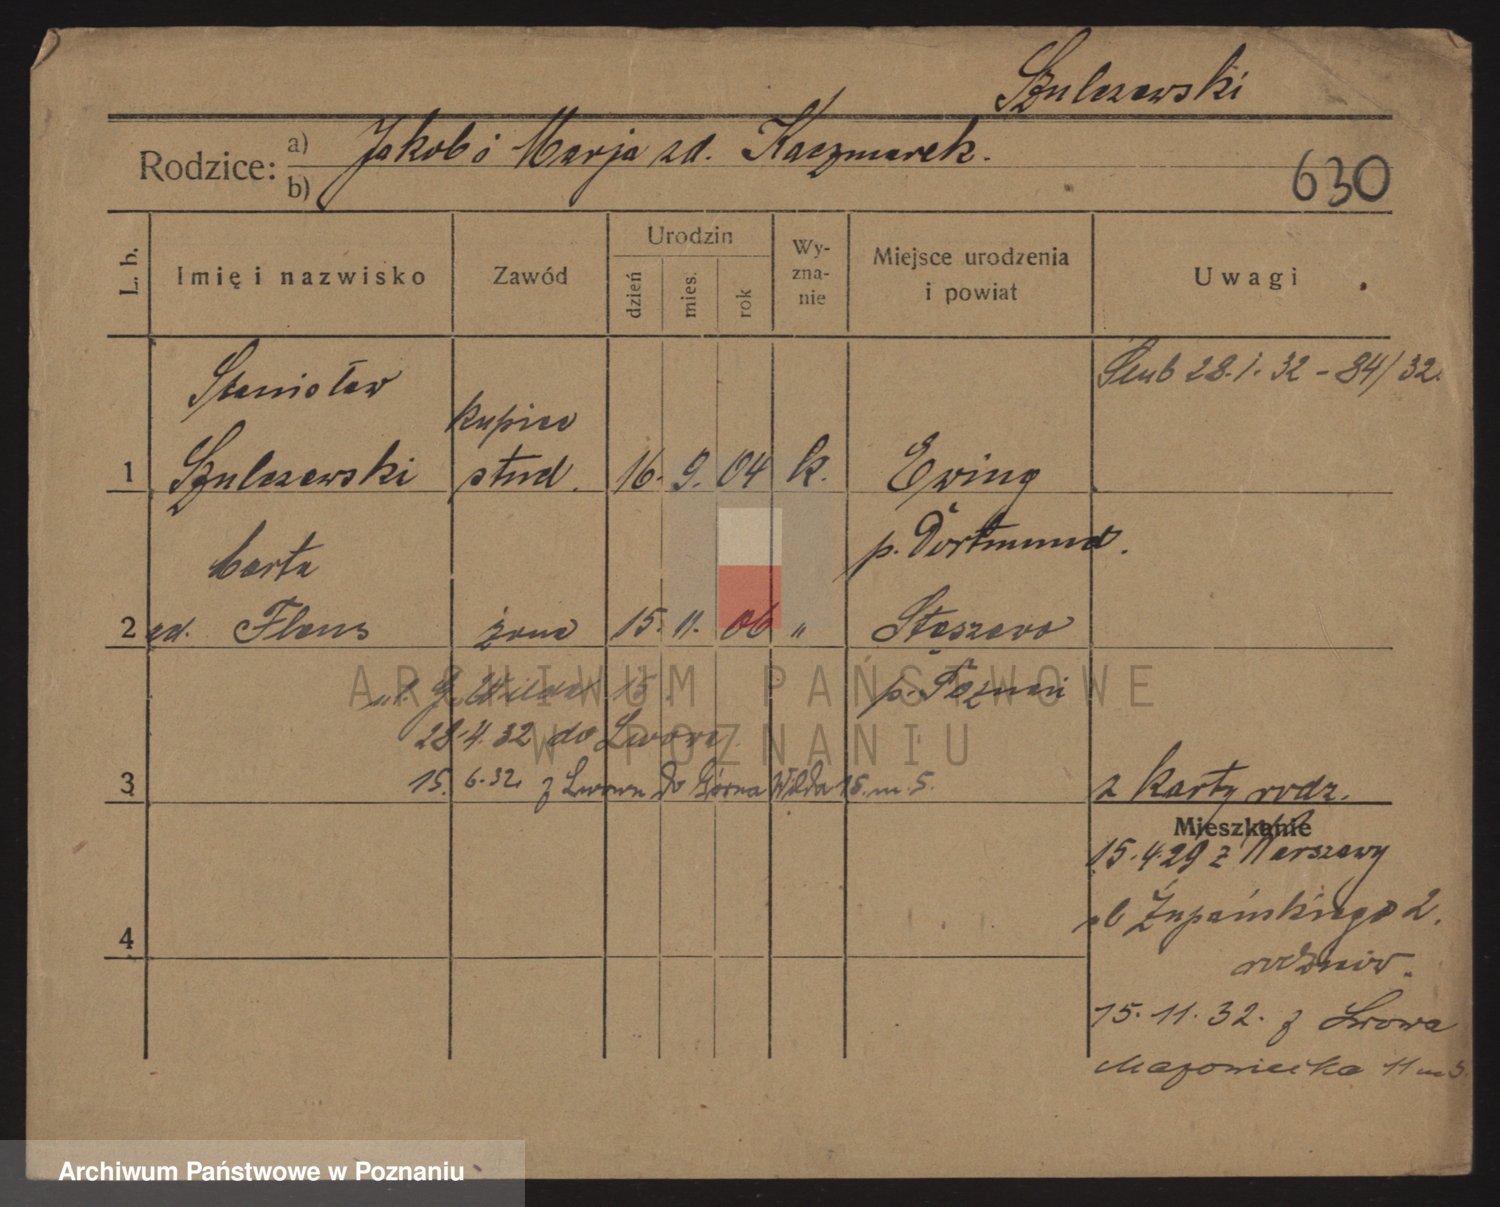 Szulczewski
Rodzice: a) Jakób i Marja zd. Kaczmarek.
b)
630
L. b.
Imię i nazwisko
Zawód
Urodzin
dzień
mies.
rok
Wy-
zna-
nie
Miejsce urodzenia
i powiat
Uwagi
Ślub 28.1.32 - 84/32.
Stanisław
kupiec
1 Szulczewski stud. 16. 9. 04 k. Eving
p. Dortmund.
2 zd. żona 15. 11. 06 " Stęszewo
p. Poznań
15.
28.4.32 do Lwowa
3 15. 6.32. z Lwowa do Górna Wilda 15. m. 5.
z karty rodz.
Mieszkanie
15.4.29 z Warszawy
Żupańskiego 2.
4
rodziców.
15.11.32. z Lwowa
Mazowiecka 11 m 5.
ARCHIWUM PAŃSTWOWE
W POZNANIU
Archiwum Państwowe w Poznaniu